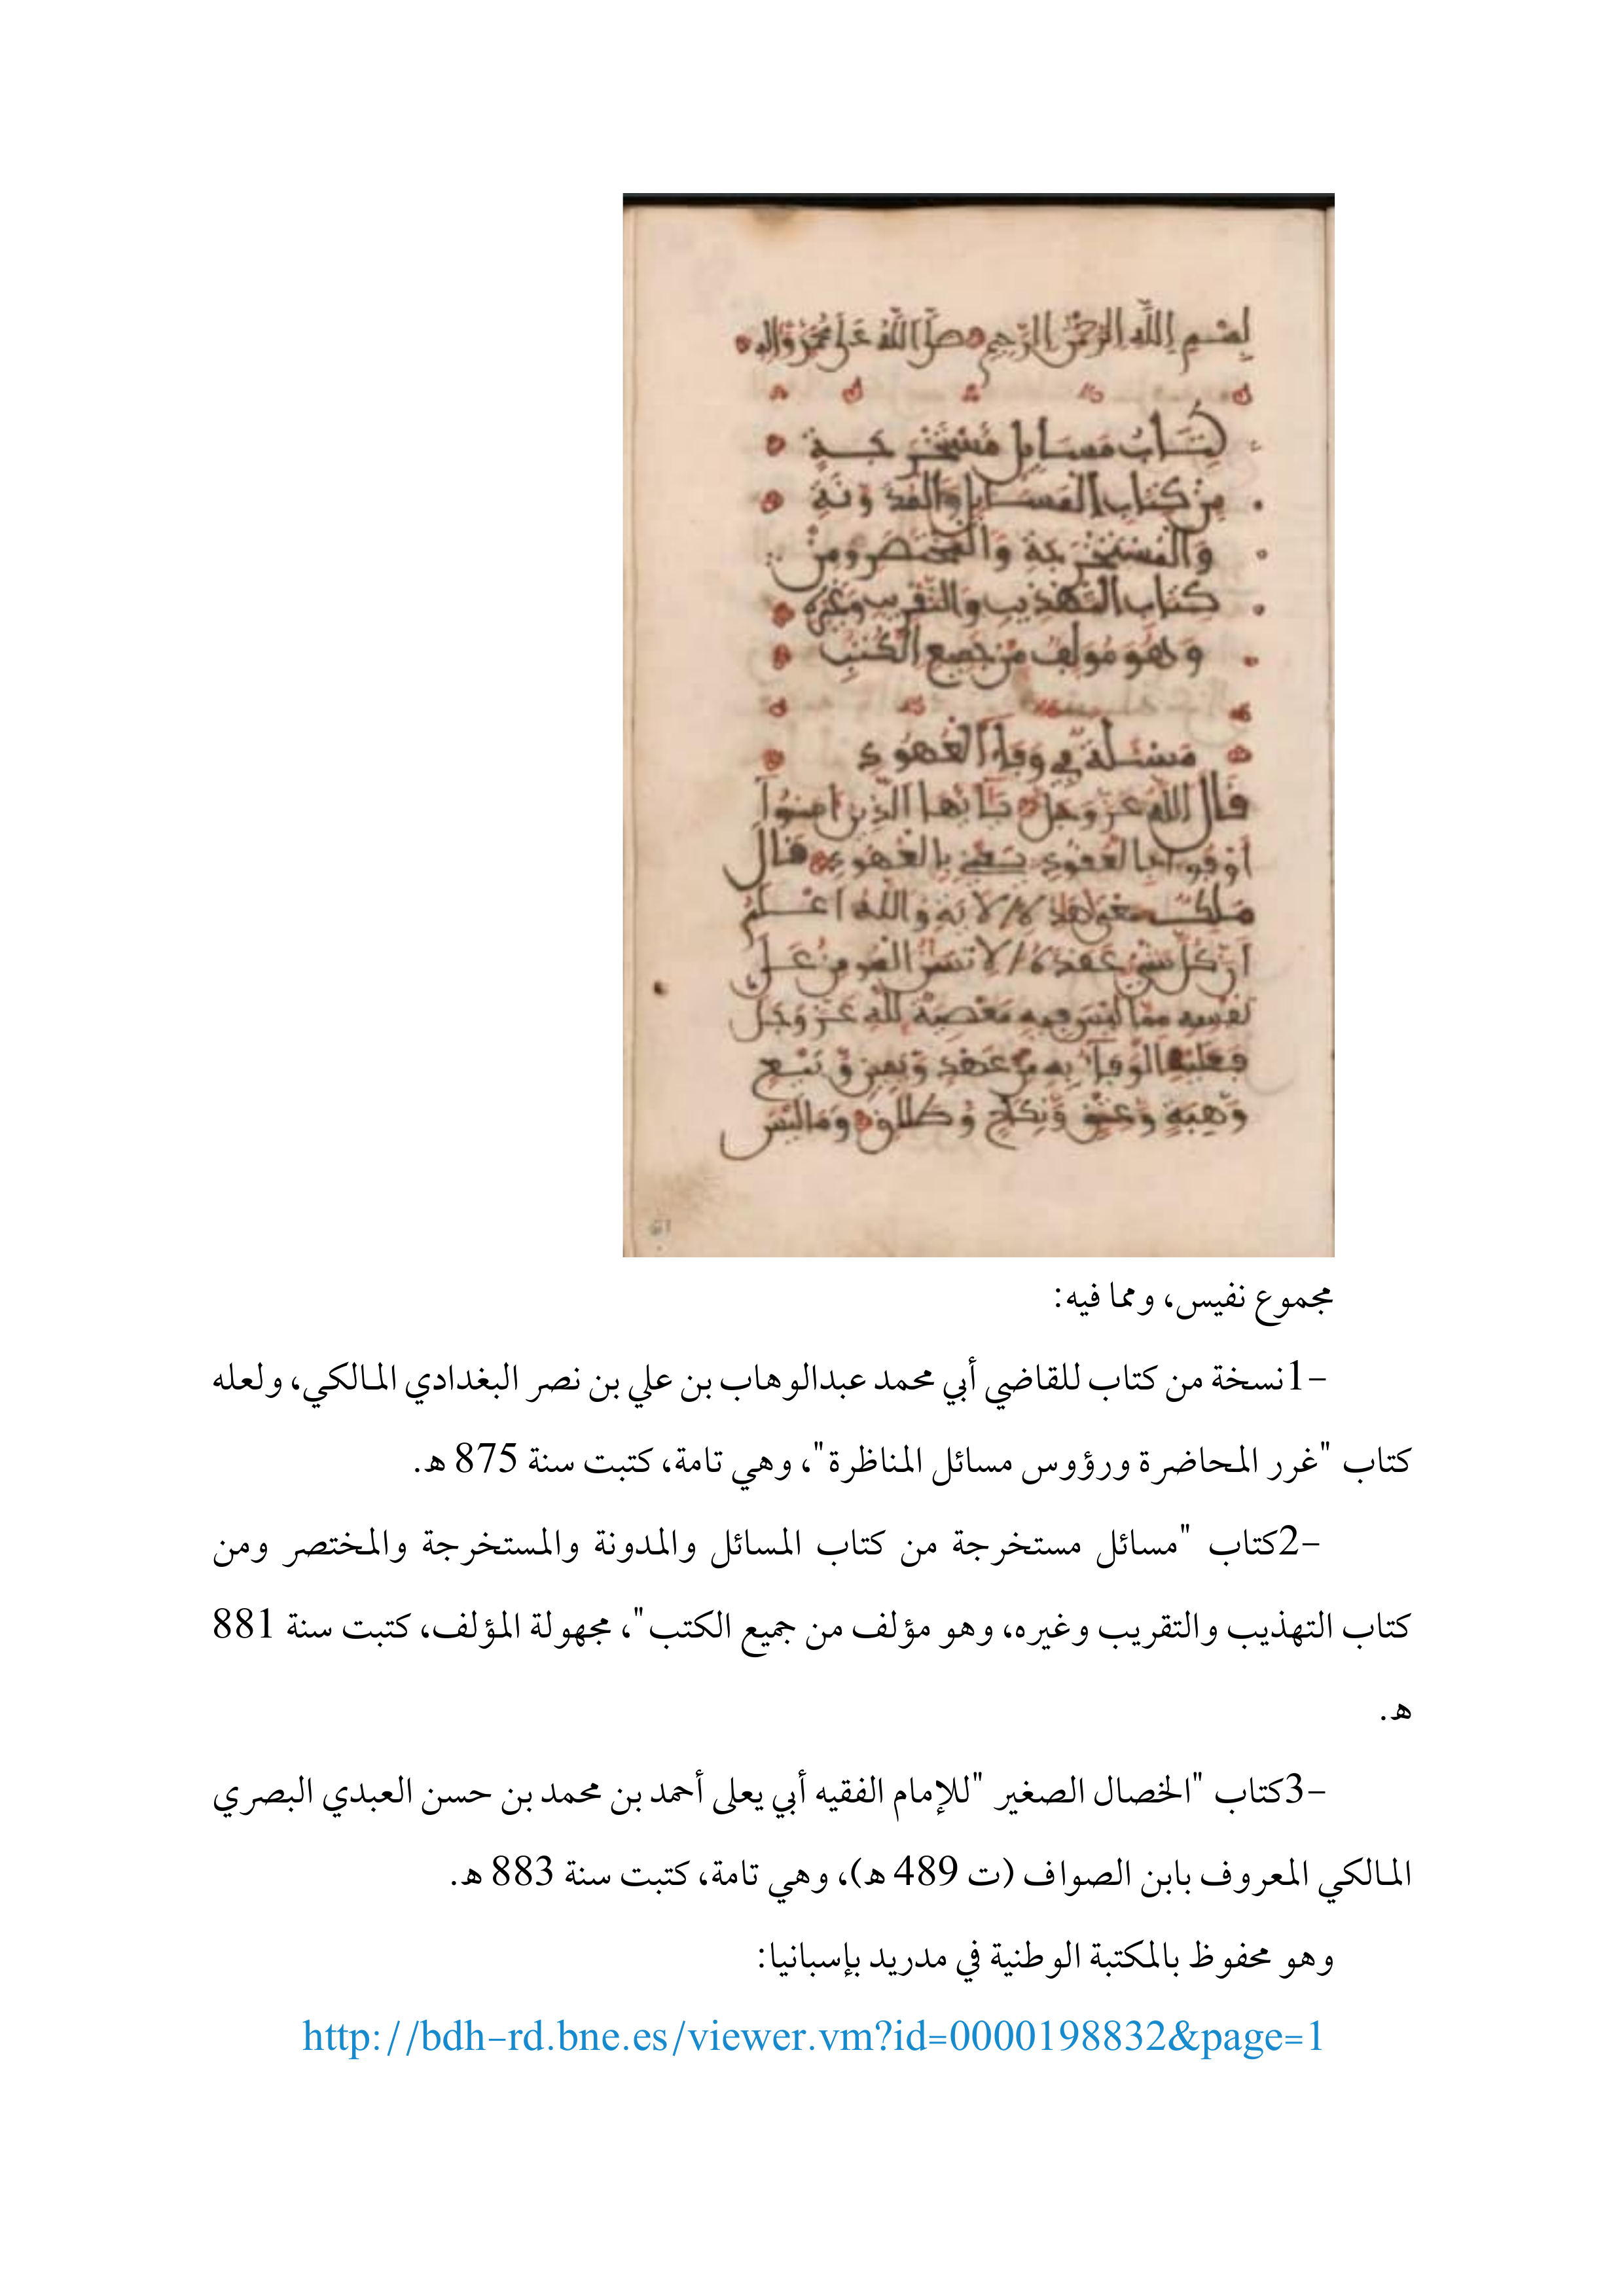 بسم الله الرحمن الرحيم صلى الله على محمد واله
كتاب مسايل مستخرجة
من كتاب المسايل والمدونة
والمستخرجة والمختصر ومن
كتاب التهذيب والتقريب وغيره
وهو مولف من جميع الكتب
مسئلة في وفاء العهود
قال الله عز وجل يايها الذين امنوا
اوفوا بالعقود يعني بالعهود قال
ملك معنى هذه الاية والله اعلم
ان كل شيء عقده الانسن المومن على
نفسه مما ليس فيه معصية لله عز وجل
فعليه الوفاء به من عهد ويمين وبيع
وهبة وعتق ونكاح وطلاق وما ليس
مجموع نفيس، ومما فيه:
-1نسخة من كتاب للقاضي أبي محمد عبدالوهاب بن علي بن نصر البغدادي المالكي، ولعله
كتاب "غرر المحاضرة ورؤوس مسائل المناظرة"، وهي تامة، كتبت سنة 875 هـ.
-2كتاب "مسائل مستخرجة من كتاب المسائل والمدونة والمستخرجة والمختصر ومن
كتاب التهذيب والتقريب وغيره، وهو مؤلف من جميع الكتب"، مجهولة المؤلف، كتبت سنة 881
هـ.
-3كتاب "الخصال الصغير "للإمام الفقيه أبي يعلى أحمد بن محمد بن حسن العبدي البصري
المالكي المعروف بابن الصواف (ت 489 هـ)، وهي تامة، كتبت سنة 883 هـ.
وهو محفوظ بالمكتبة الوطنية في مدريد بإسبانيا:
http://bdh-rd.bne.es/viewer.vm?id=0000198832&page=1